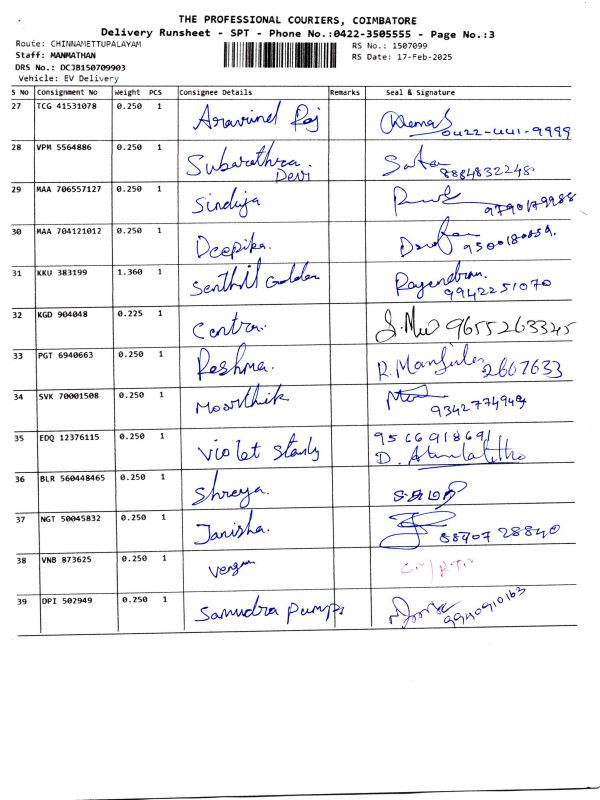 THE PROFESSIONAL COURIERS, COIMBATORE
Delivery Runsheet - SPT - Phone No.:0422-3505555 - Page No.:3
Route: CHINNAMETTUPALAYAM RS No.: 1507099
Staff: MANMATHAN RS Date: 17-Feb-2025
DRS No.: DCJB150709903
Vehicle: EV Delivery
S No Consignment No Weight PCS Consignee Details Remarks Seal & Signature
27 TCG 41531078 0.250 1 Aravind Raj
0422-441-9999
28 VPM 5564886 0.250 1 Subarathra Devi
8884832248
29 MAA 706557127 0.250 1 Sinduja
9790179988
30 MAA 704121012 0.250 1 Deepika
31 KKU 383199 1.360 1 Senthil Golden Rajendran
9942251070
32 KGD 904048 0.225 1 Centra 9655263345
33 PGT 6940663 0.250 1 Reshma
2607633
34 SVK 70001508 0.250 1 Moorthik
9342774949
35 EDQ 12376115 0.250 1 Violet 9566918691
36 BLR 560448465 0.250 1 Shreya
37 NGT 50045832 0.250 1 Janisha
88907 28840
38 VNB 873625 0.250 1
39 DPI 502949 0.250 1 Samudra Pumps
9940910163